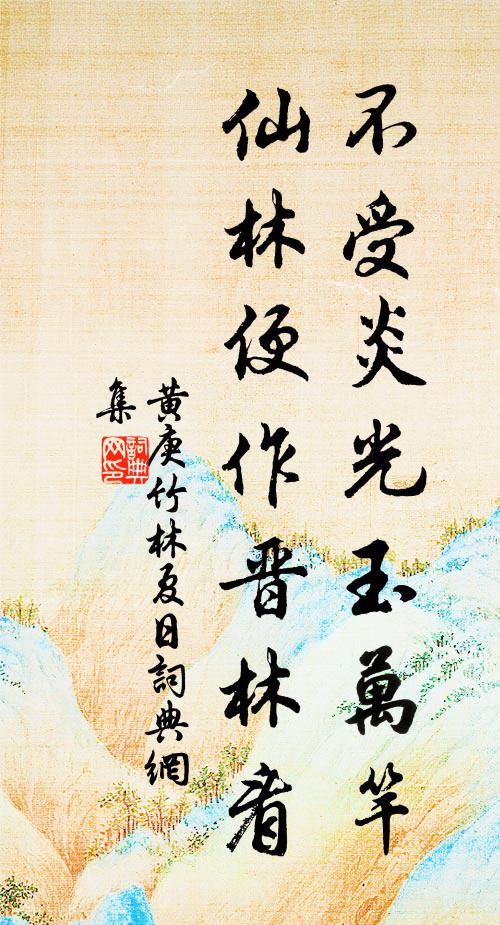 不受炎光玉萬竿
仙林便作晋林看
黄庚竹林夏日詞典網
集
詞典
网印